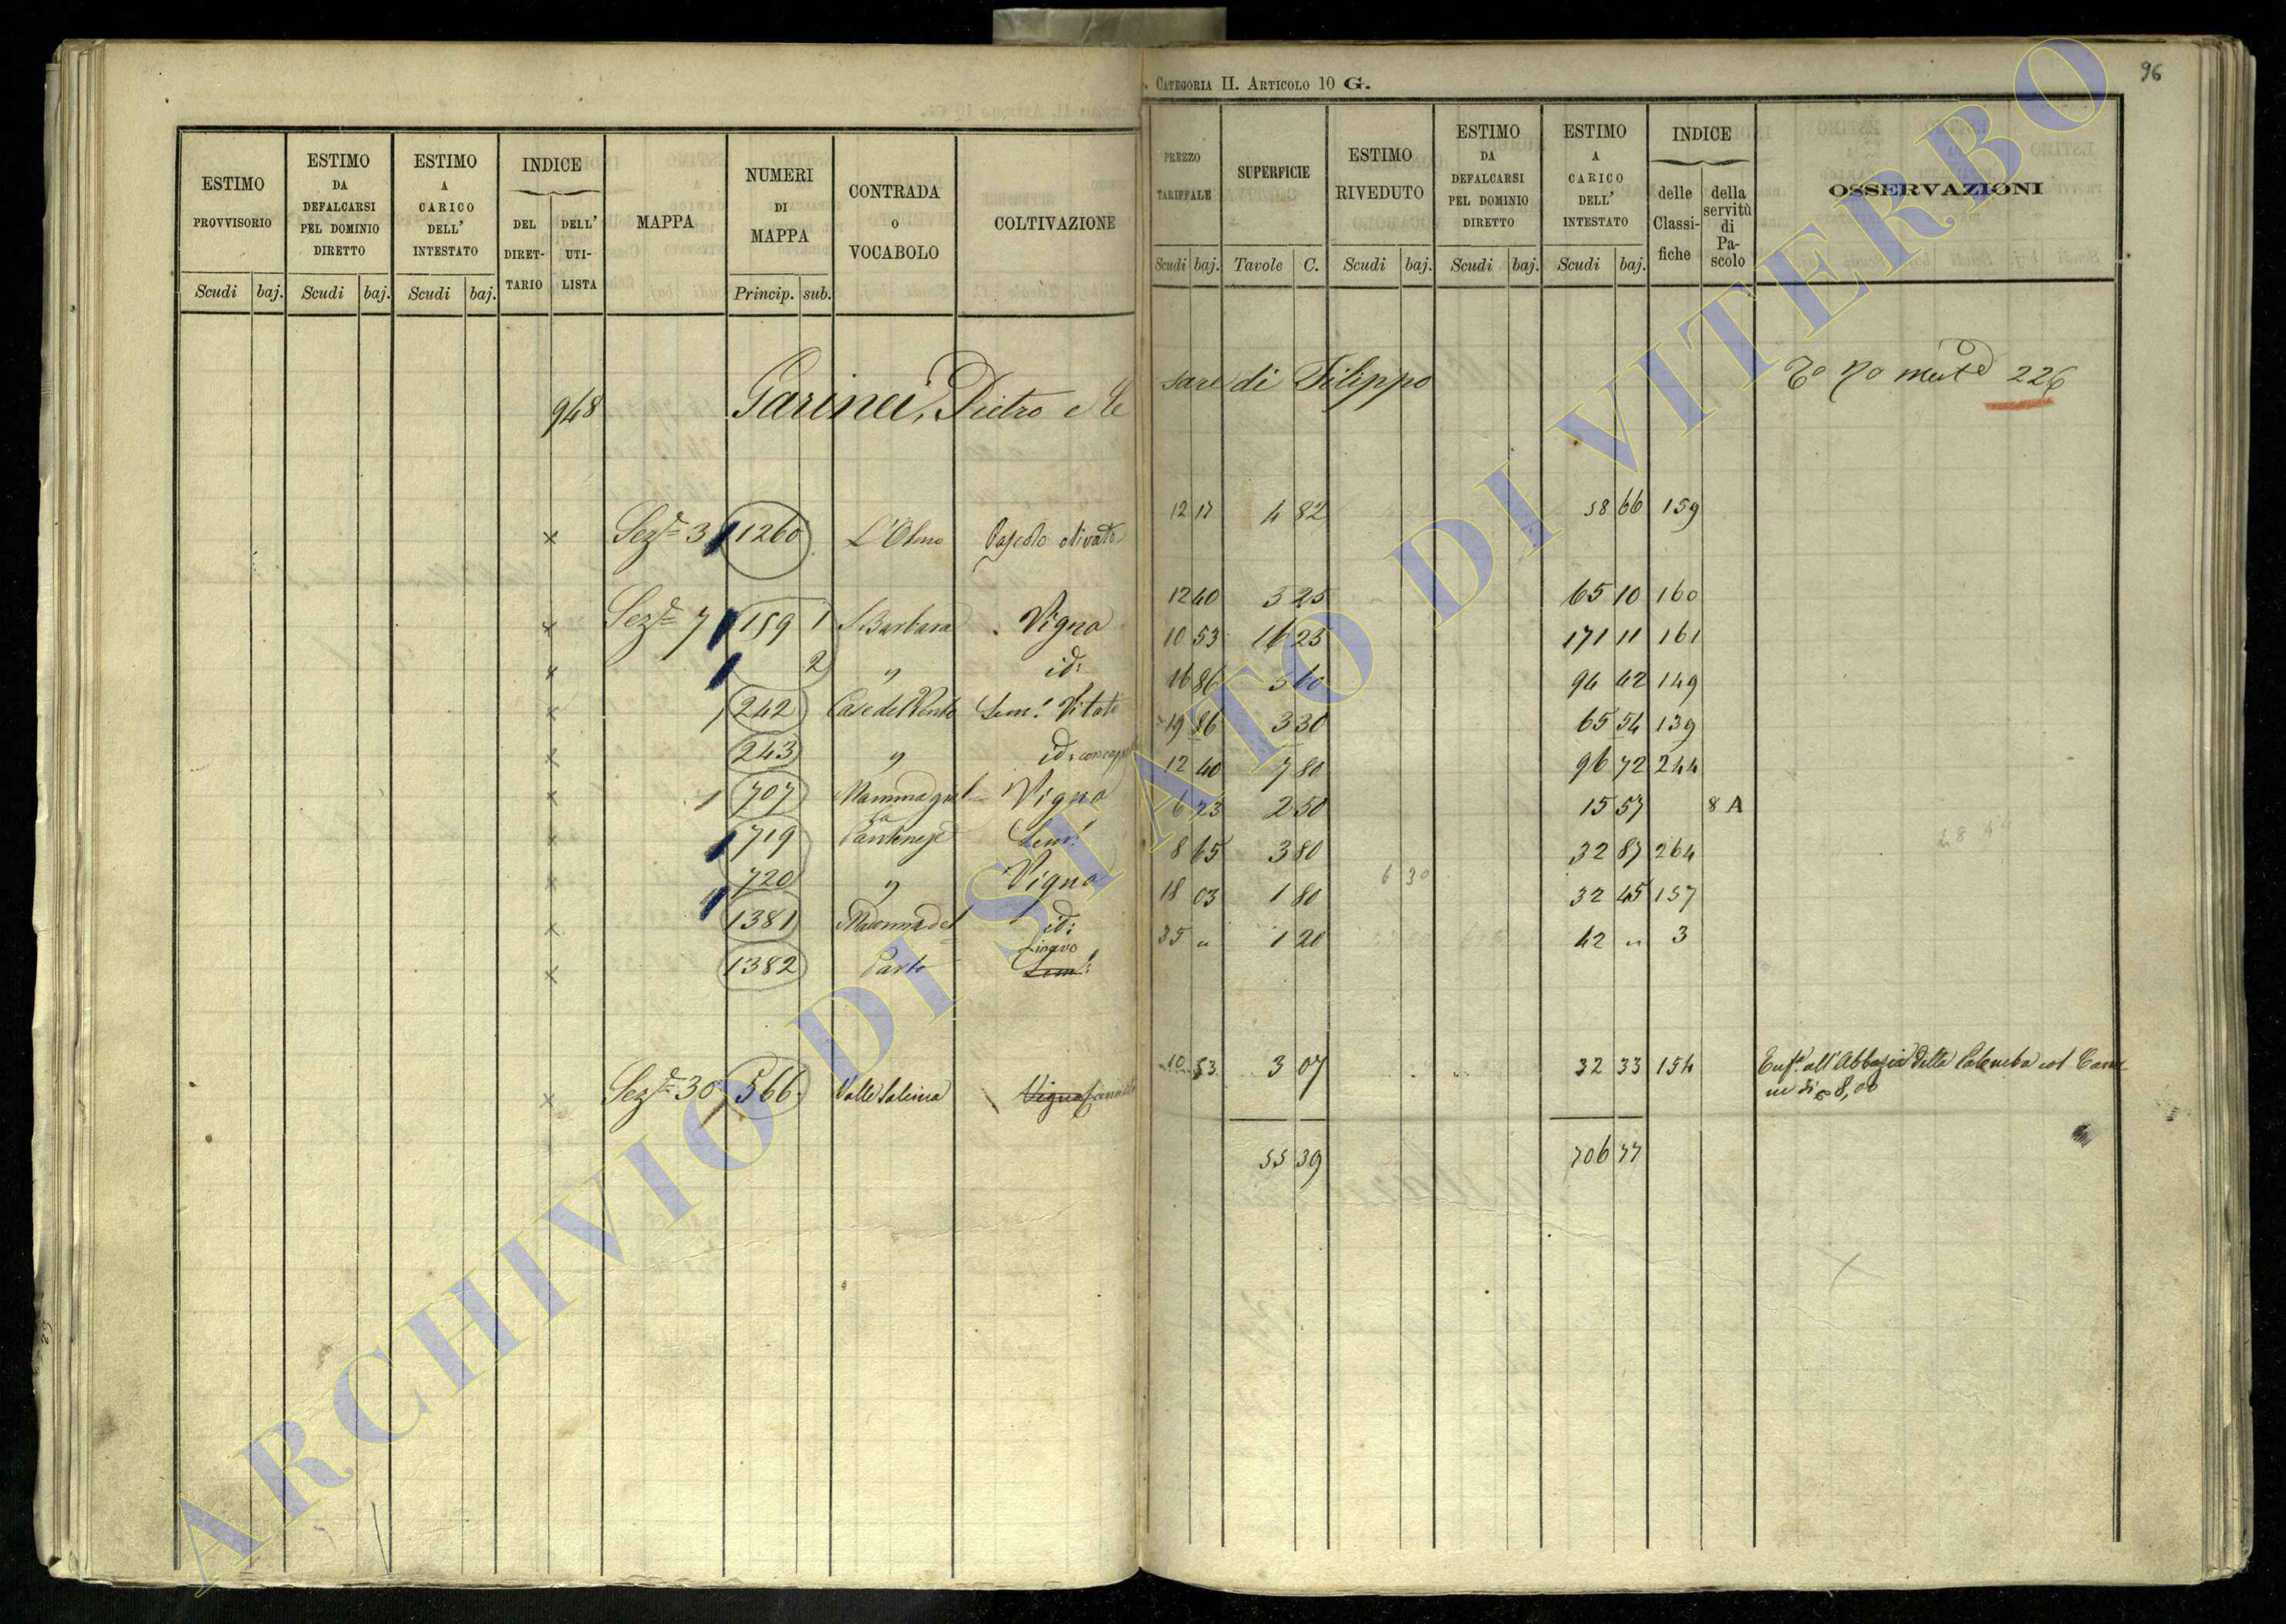 CATEGORIA II. ARTICOLO 10 G.
96
ESTIMO PROVVISORIO
ESTIMO DA DEFALCARSI PEL DOMINIO DIRETTO
ESTIMO A CARICO DELL' INTESTATO
INDICE
DEL DIRETTARIO
DELL' UTILISTA
MAPPA
NUMERI DI MAPPA
CONTRADA o VOCABOLO
COLTIVAZIONE
PREZZO TARIFFALE
SUPERFICIE
ESTIMO RIVEDUTO
ESTIMO DA DEFALCARSI PEL DOMINIO DIRETTO
ESTIMO A CARICO DELL' INTESTATO
INDICE
delle Classifiche
della servitù di Pascolo
OSSERVAZIONI
Scudi baj. Scudi baj. Scudi baj. Princip. sub. Scudi baj. Tavole C. Scudi baj. Scudi baj. Scudi baj.
948 Garinei, Pietro e Cesare di Filippo 226
x Sez.e 3 1260 L'Olmo Pascolo olivato 12 17 4 82 58 66 159
x Sez.e 7 159 1 S. Barbara Vigna 12 40 5 25 65 10 160
x 2 " id: 10 53 16 25 171 11 161
x 242 Case del Vento Sem: Vitato 16 86 5 60 94 42 149
x 243 " id: 19 86 3 30 65 54 139
x 707 Vigna 12 40 7 80 96 72 244
x 719 Sem: 6 23 2 50 15 57 8 A
x 720 " Vigna 8 65 3 80 32 87 264
6 30
x 1381 Madonna del id: 18 03 1 80 32 45 157
x 1382 Parto Sem: 35 " 1 20 42 " 3
x Sez.e 30 566 Valle Salcina Vigna 10 53 3 07 32 33 154 Enf.a all'Abbazia della Palomba col Canone di 8,00
55 39 706 77
ARCHIVIO DI STATO DI VITERBO